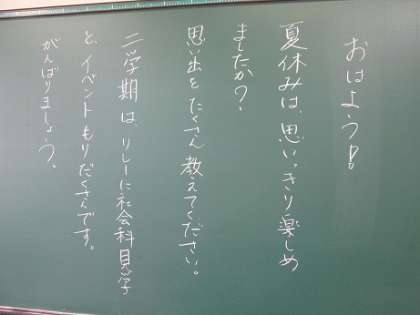 おはよう!!
夏休みは、思いっきり楽しめ
ましたか?
思い出をたくさん教えてください。
二学期は、リレーに社会科見学
と、イベントもりだくさんです。
がんばりましょう。